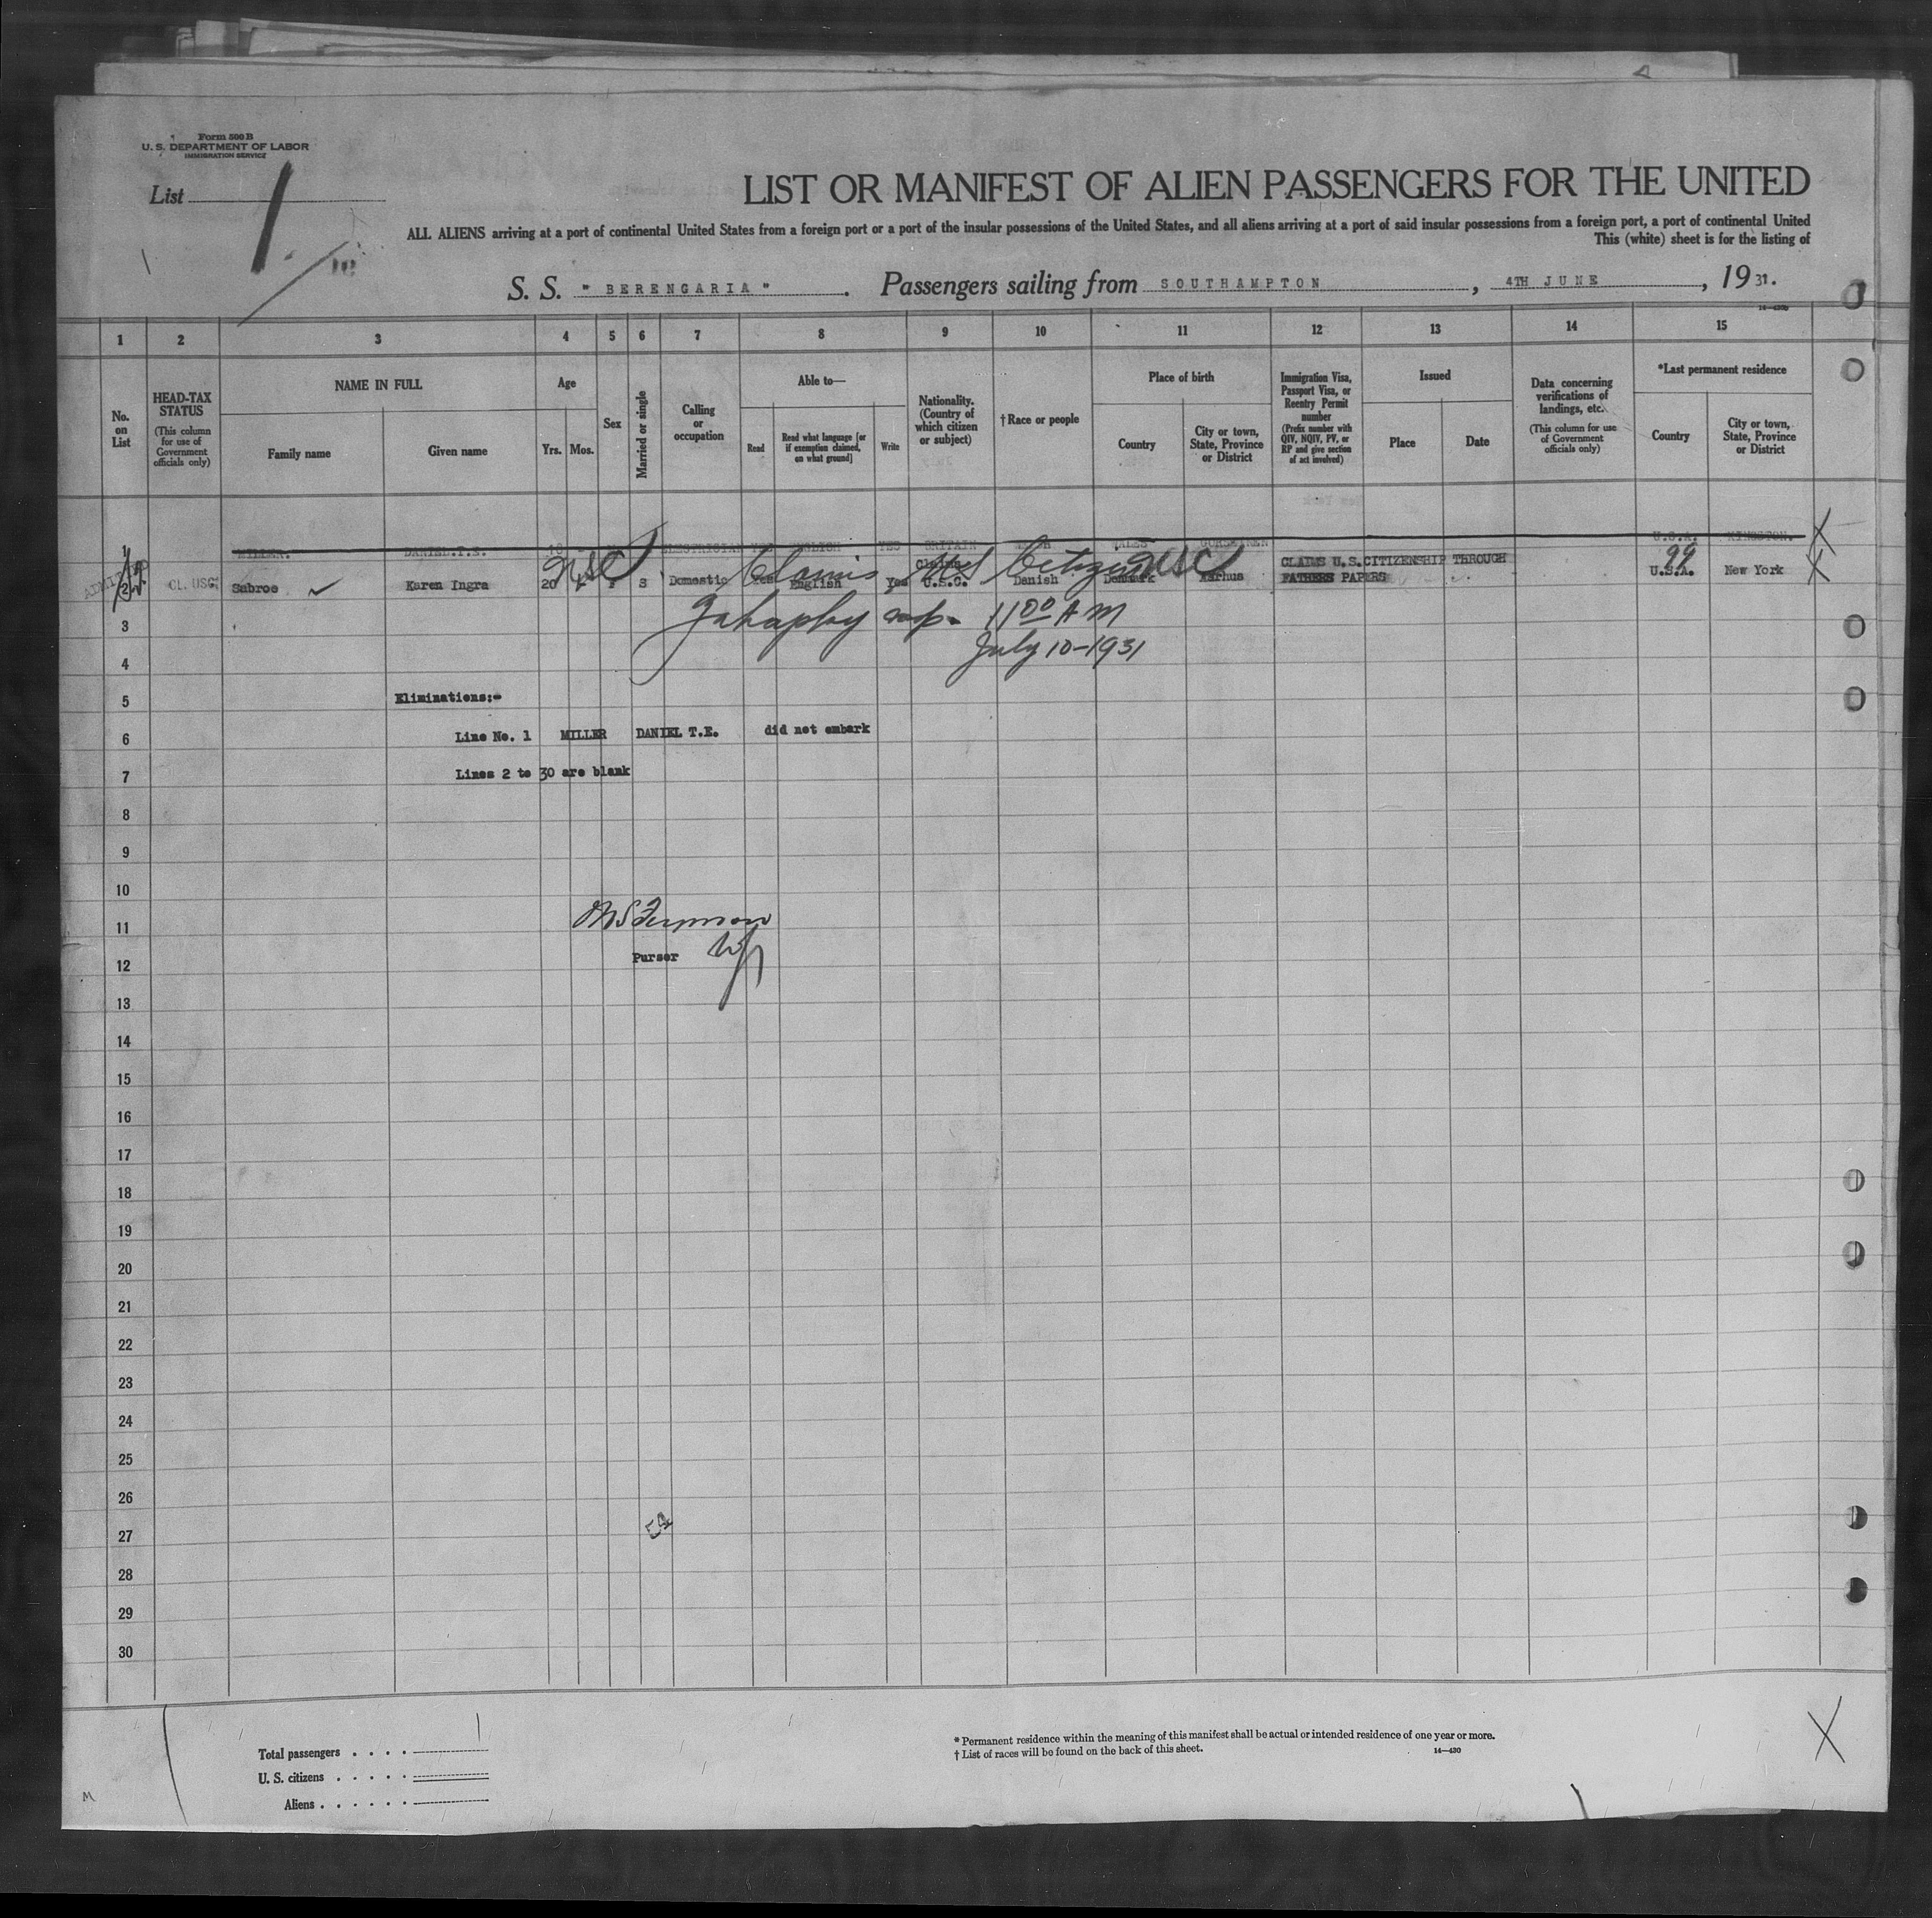 Form 500 B
U. S. DEPARTMENT OF LABOR
IMMIGRATION SERVICE
List 1.
LIST OR MANIFEST OF ALIEN PASSENGERS FOR THE UNITED
ALL ALIENS arriving at a port of continental United States from a foreign port or a port of the insular possessions of the United States, and all aliens arriving at a port of said insular possessions from a foreign port, a port of continental United
This (white) sheet is for the listing of
S. S. "BERENGARIA". Passengers sailing from SOUTHAMPTON, 4TH JUNE, 1931.
1 2 3 4 5 6 7 8 9 10 11 12 13 14 15
No. on List
HEAD-TAX STATUS
(This column for use of Government officials only)
NAME IN FULL
Family name
Given name
Age
Yrs. Mos.
Sex
Married or single
Calling or occupation
Able to—
Read
Read what language [or if exemption claimed, on what ground]
Write
Nationality. (Country of which citizen or subject)
† Race or people
Place of birth
Country
City or town, State, Province or District
Immigration Visa, Passport Visa, or Reentry Permit number
(Prefix number with QIV, NQIV, PV, or RP and give section of act involved)
Issued
Place
Date
Data concerning verifications of landings, etc.
(This column for use of Government officials only)
*Last permanent residence
Country
City or town, State, Province or District
1 MILLER. DANIEL.T.E. ELECTRICIAN YES ENGLISH YES BRITAIN WALES U.S.A.
USC Claims US Citizen USC 99
2 CL. USC. Sabroe ✓ Karen Ingra 20 F S Domestic Yes English Yes Claims U.S.C. Danish Denmark Aarhus CLAIMS U.S.CITIZENSHIP THROUGH FATHERS PAPERS U.S.A. New York
3 11 00 A M
July 10-1931
4
5 Eliminations:-
6 Line No. 1 MILLER DANIEL T.E. did not embark
7 Lines 2 to 30 are blank
8
9
10
11
12 Purser
13
14
15
16
17
18
19
20
21
22
23
24
25
26
27
28
29
30
Total passengers . . . .
U. S. citizens . . . . .
Aliens . . . . . .
* Permanent residence within the meaning of this manifest shall be actual or intended residence of one year or more.
† List of races will be found on the back of this sheet.
14—430